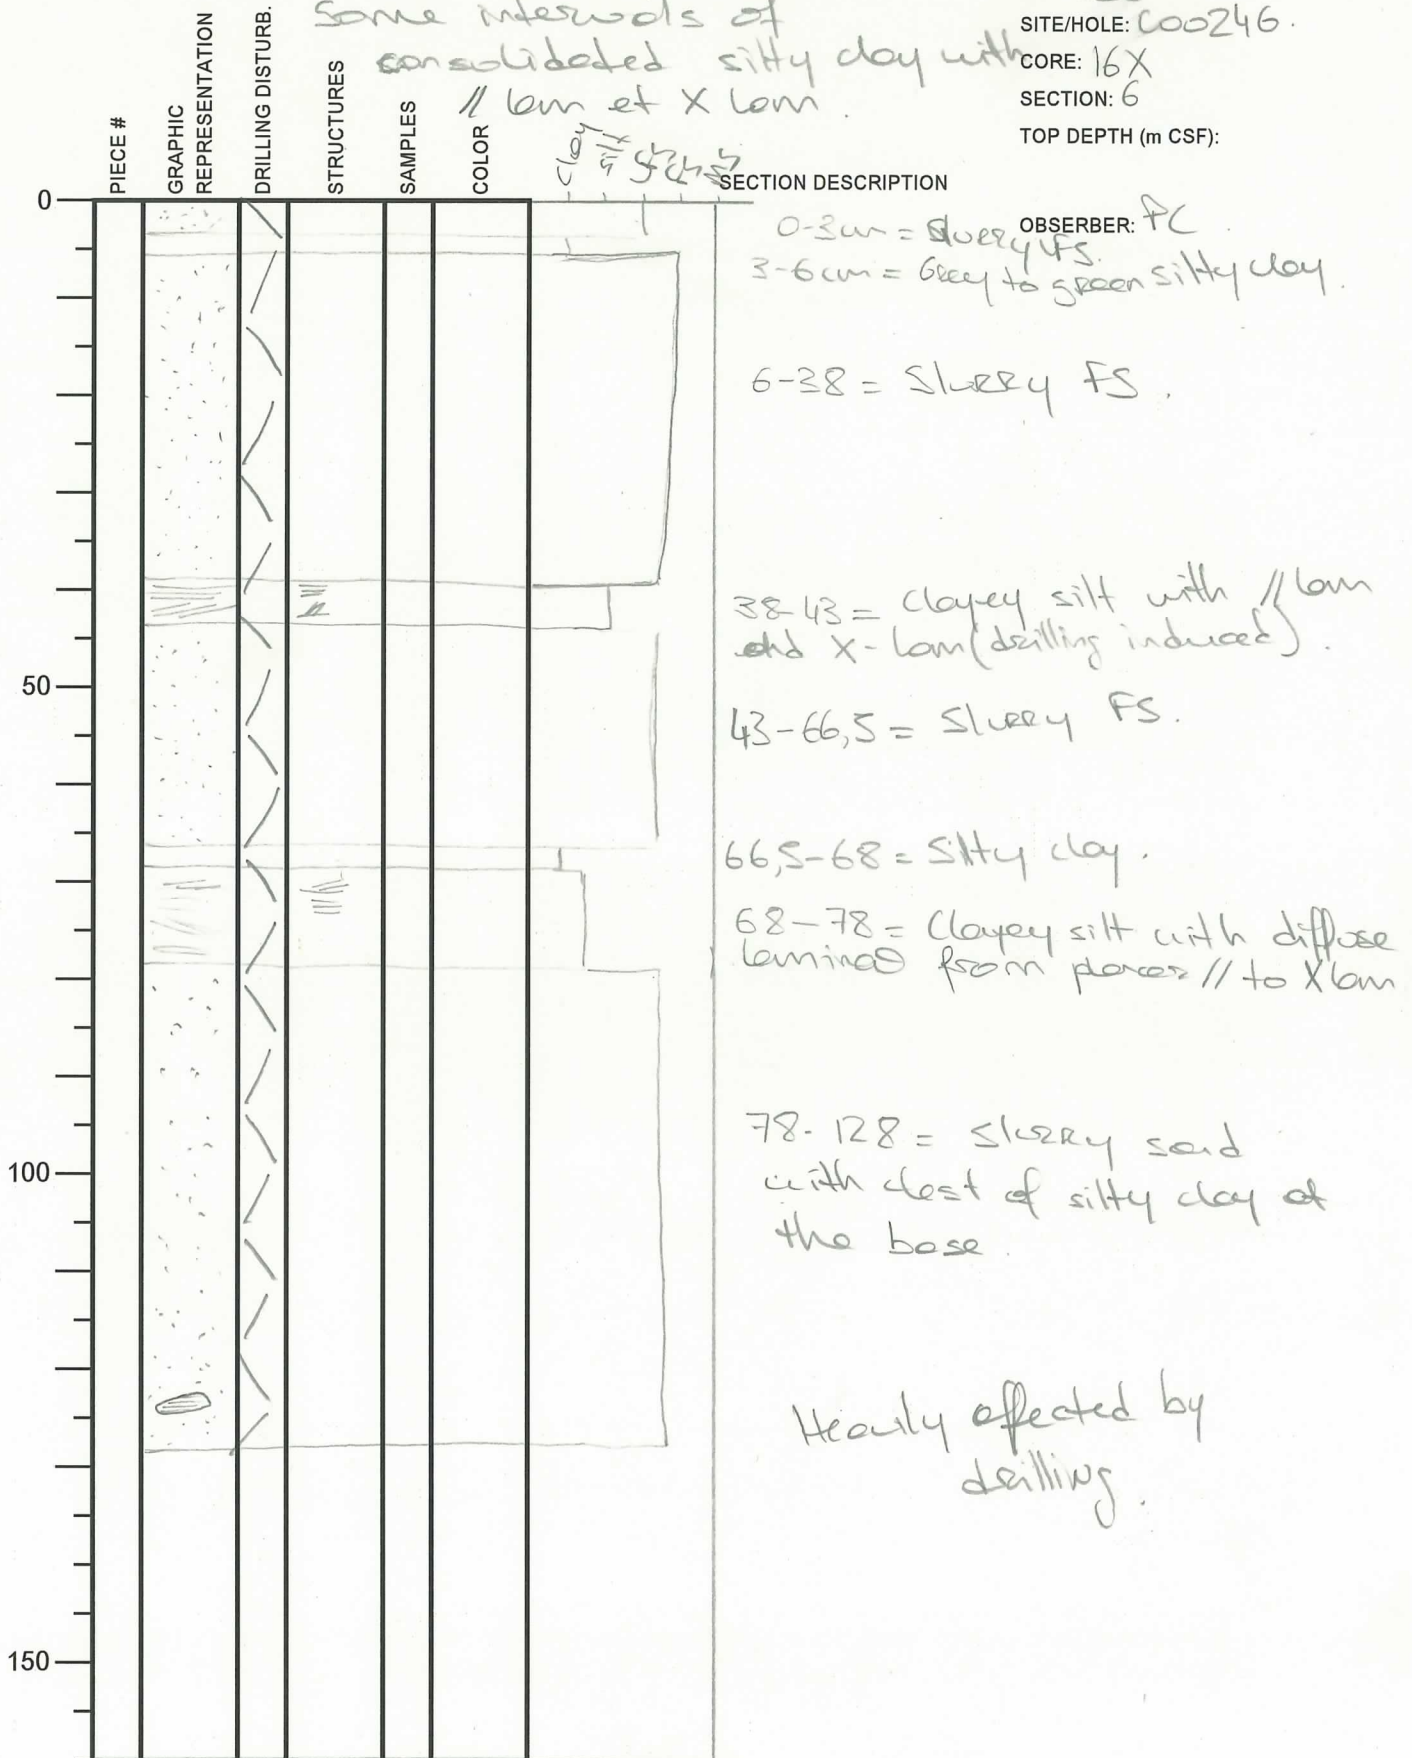 Some intervals of
consolidated silty clay with
// lam et X lam.
SITE/HOLE: C00246.
CORE: 16X
SECTION: 6
TOP DEPTH (m CSF):
PIECE #
GRAPHIC
REPRESENTATION
DRILLING DISTURB.
STRUCTURES
SAMPLES
COLOR
clay
SECTION DESCRIPTION
OBSERBER: PC
0
0-3cm = Slurry FS.
3-6cm = Grey to green silty clay.
6-38 = Slurry FS.
38-43 = Clayey silt with // lam
and X-lam (drilling induced).
50
43-66,5 = Slurry FS.
66,5-68 = Silty clay.
68-78 = Clayey silt with diffuse
laminae from places // to X lam
78-128 = Slurry sand
100
with clast of silty clay at
the base.
Heavily affected by
drilling.
150